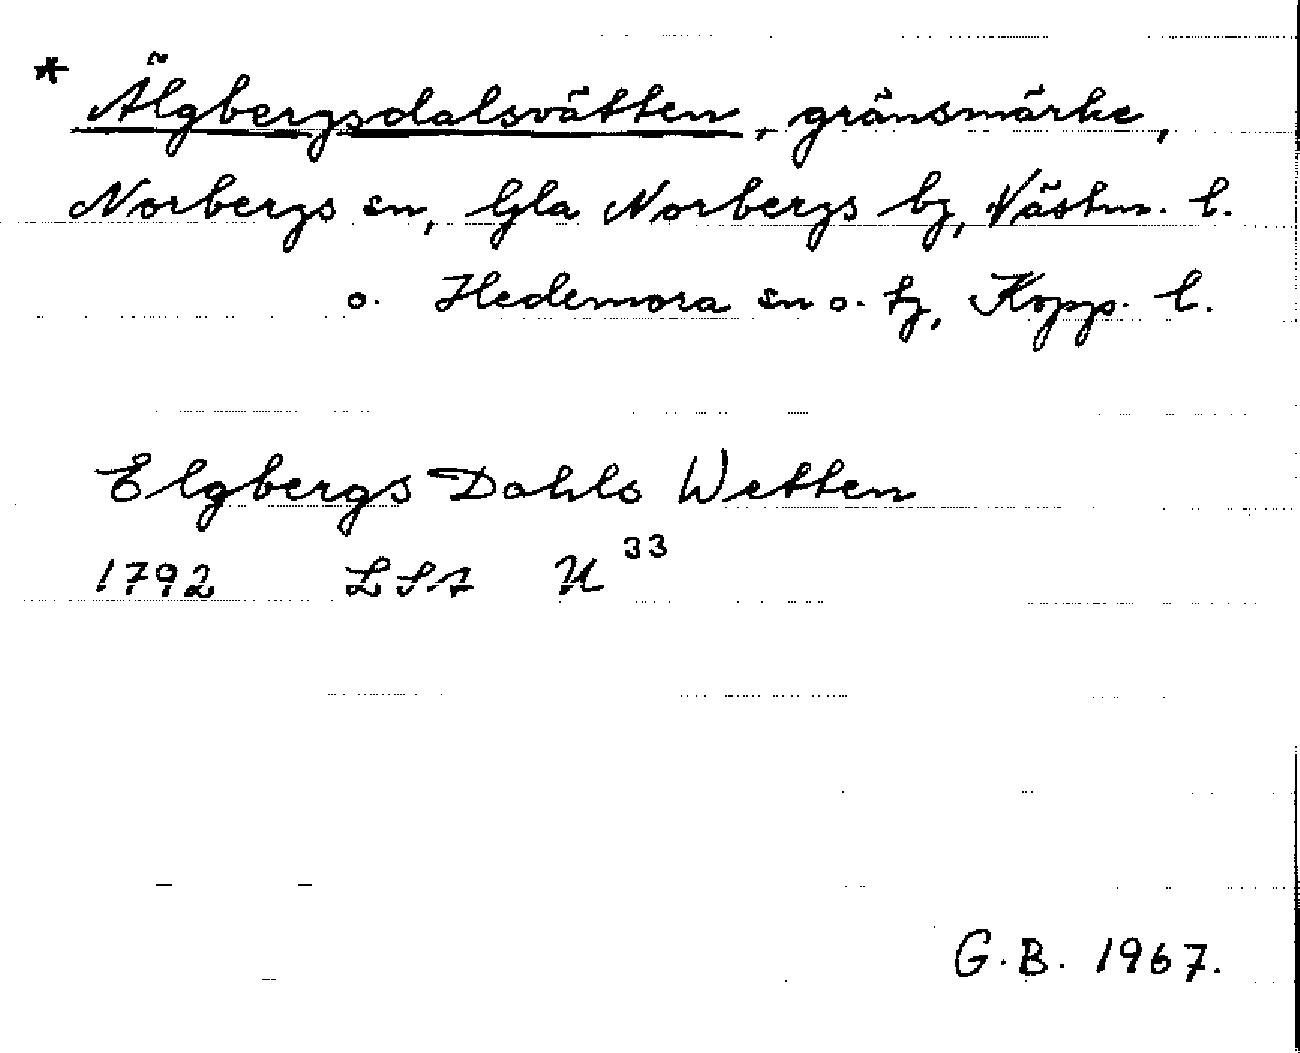 * Älgbergsdalsvätten, gränsmärke,
Norbergs sn, Gla Norbergs bg, Västm. l.
o. Hedemora sn o. tg, Kopp. l.
Elgbergs Dahls Wetten
1792 LSA U 33
G.B. 1967.